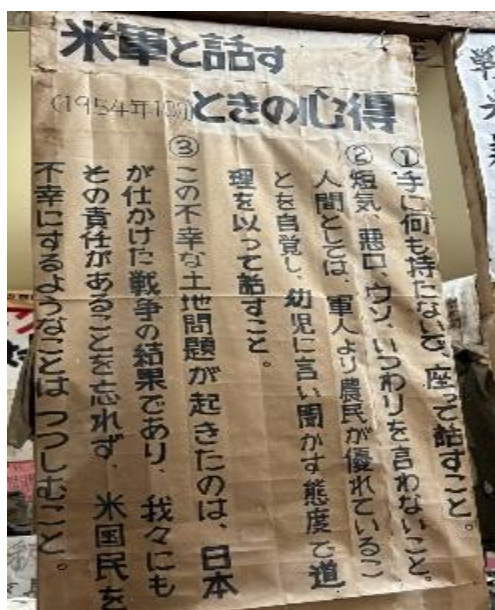 米軍と話す
(1954年10月)ときの心得
①手に何も持たないで、座って話すこと。
②短気、悪口、ウソ、いつわりを言わないこと。
人間としては、軍人より農民が優れているこ
とを自覚し、幼児に言い聞かす態度で道
理を以って話すこと。
③この不幸な土地問題が起きたのは、日本
が仕かけた戦争の結果であり、我々にも
その責任があることを忘れず、米国民を
不幸にするようなことはつつしむこと。